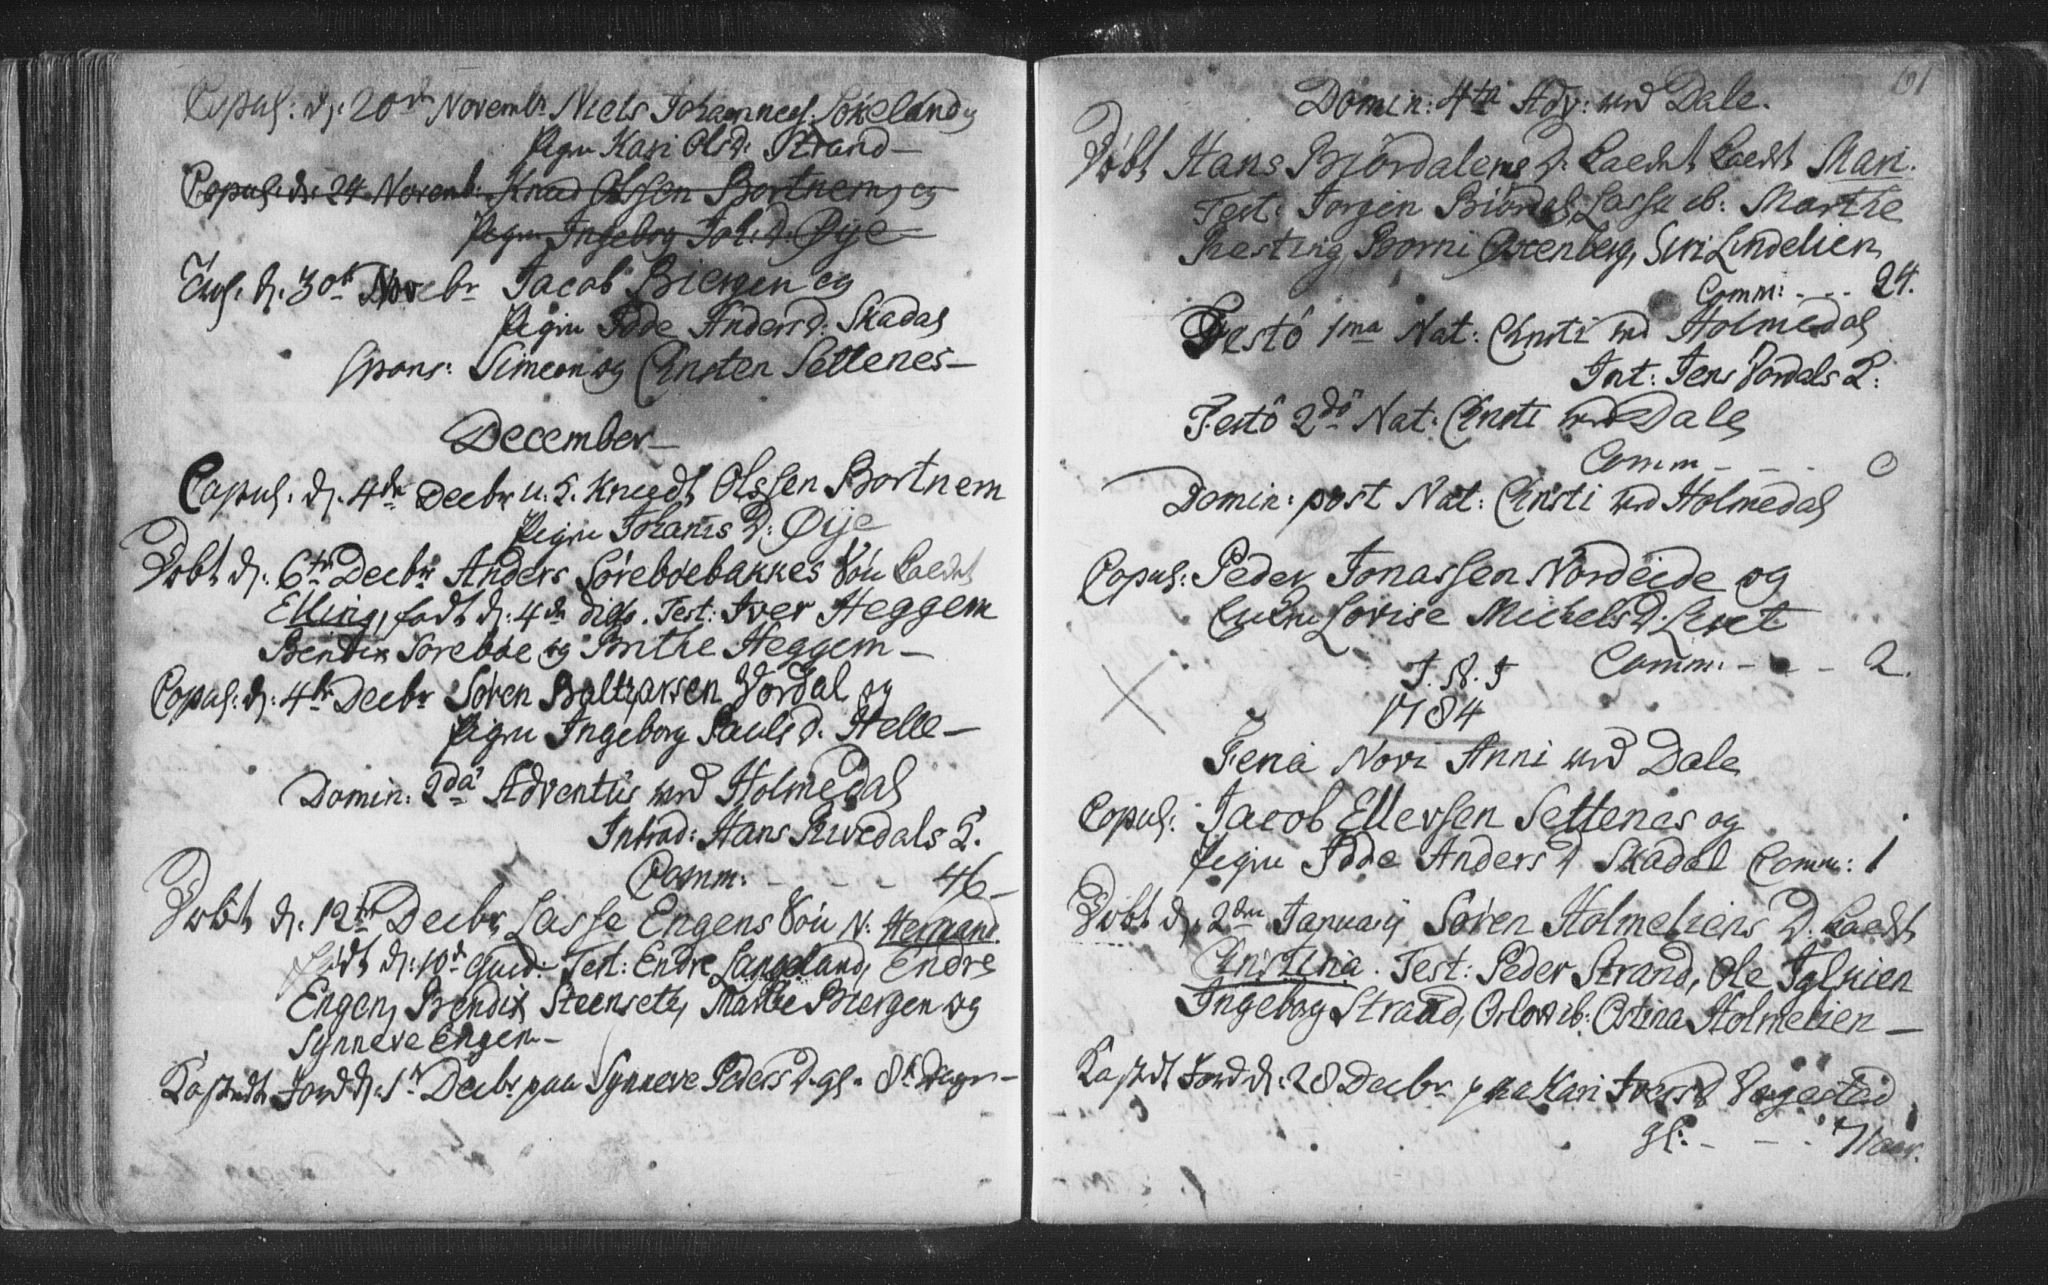 Copul: d: 20de Novembr Niels Johannes: Sókeland og
Pigen Kari Olsd: Strand—
Copul: d: 24 Novemb: Knud Olssen Bortnem og
Pigen Ingeborg Joh: d: Øije—
d. 30te Novebr Jacob Biergen og
Pigen Odde Andersd: Skadal
spons: Simeon og Christen Settenes—
December—
Copul. d. 4de Decbr u. T. Knudt Olssen Bortnem
Pigen Johanis D: Øije
Dobt d: 6te Decbr Anders Sórebóebakkes Són kaldet
Elling, fodt d: 4de dito. Test: Iver Heggem
Bendix Sorebóe og Brithe Heggem—
Copul: d: 4de Decbr Sóren Baltzarsen Vordal og
Pigen Ingeborg Pauls d. Helle—
Domin: 2da Adventus ved Holmedal
Introd: Hans Rivedals
Comm: - - - 46—
Dobt d. 12te Decbr Lasse Engens Són N: Hermand.
fódt d: 10de Test: Endre Langeland, Endre
Engen, Bendix Steensete, Marthe Biergen og
Synneve Engen—
Kastedt Jord d: 1te Decbr paa Synneve Peders D. gl. 8te Dage—
61
Domin: 4ta Adv: ved Dale.
Dóbt Hans Biórdalens D. kaldet Mari.
Test: Jorgen Biórdal, Lasse ib: Marthe
Presting, Borni Ostenberg, Siri Lindelien
Comm: - - - 24.
Festó 1ma Nat: Christi ved Holmedal
Int: Jens Vordals
Festó 2dó Nat: Christi ved Dale
Comm - - - 0
Domin: post Nat: Christi ved Holmedal
Copul: Peder Jonassen Nordeide og
Lovise Michelsd: Leret
Comm: - - - 2.
1784
Feria Novi Anni ved Dale
Copul: Jacob Ellersen Settenes og
Pigen Odde Anders D Skadal Comm: 1
Dobt d. 2den January Sóren Holmeliens D. kaldt
Christina. Test: Peder Strand, Ole Igluien
Ingeborg Strand, ib: Ostina Holmelien—
Kastedt Jord d: 28 Decbr paa Kari Iversd Vagestad
gl: - - - 7 Aar.